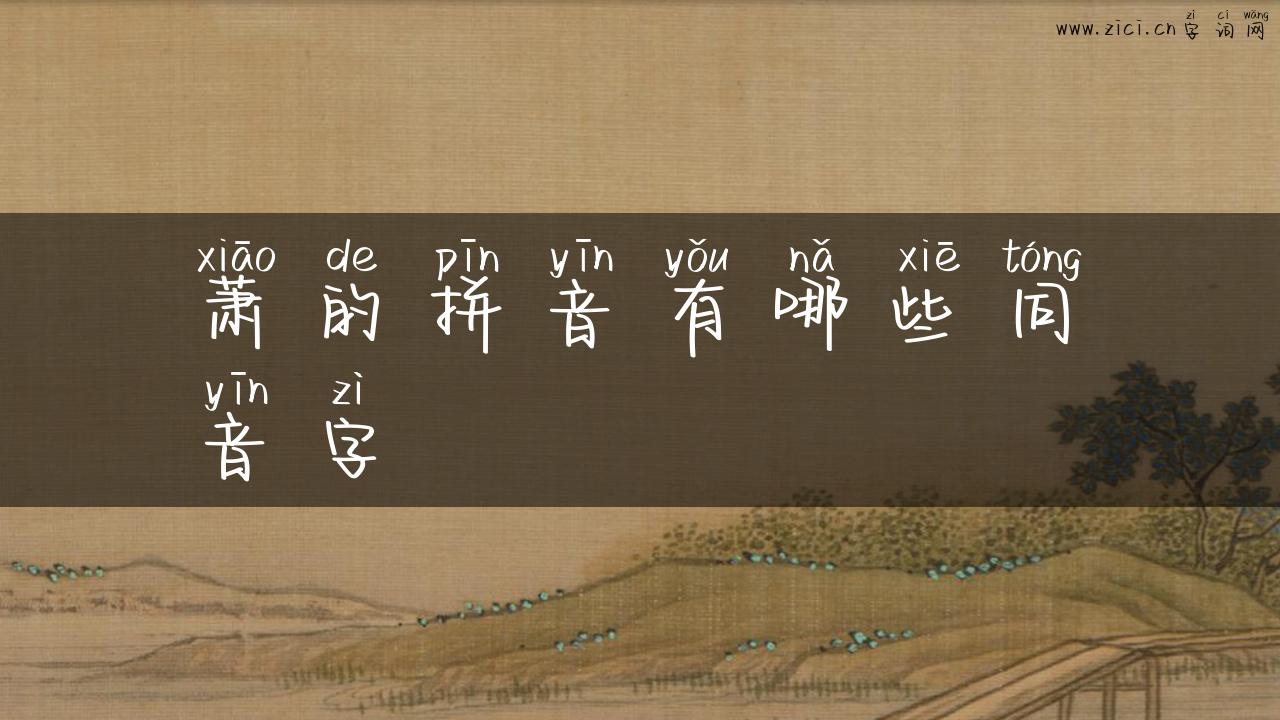 zì cí wǎng
www.zici.cn 字词网
xiāo de pīn yīn yǒu nǎ xiē tóng
萧的拼音有哪些同
yīn zì
音字